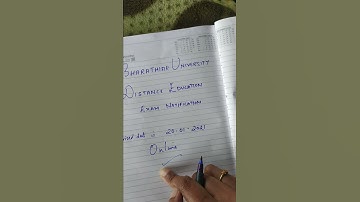 BHARATHIDE UNIVERSITY
DISTANCE EDUCATION
EXAM NOTIFICATION
20-01-2021
Online